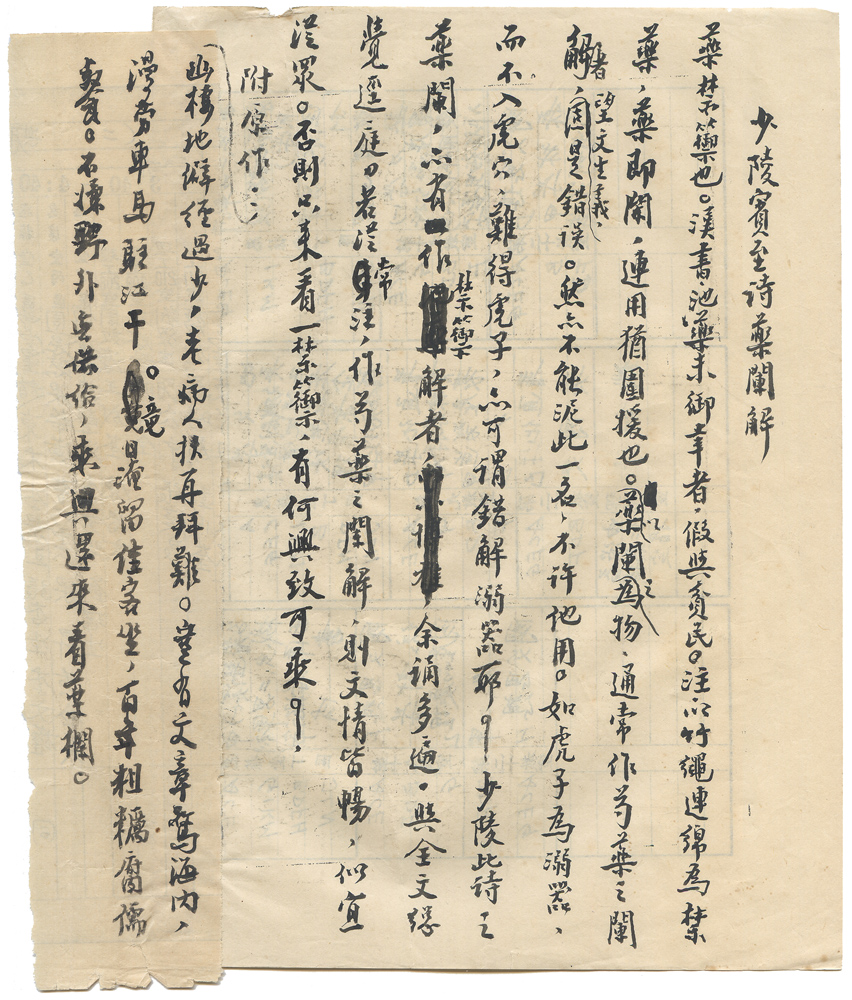 少陵賓至詩藥闌解
藥禁籞也。漢書池藥未御幸者，假與貧民。注以竹繩連綿為禁
藥，藥即闌，連用猶園援也。以藥闌為物，通常作芍藥之闌
解者，望文生義，固是錯误。然亦不能泥此一名，不許他用。如虎子為溺器，
而不入虎穴，難得虎子，亦可謂錯解溺器耶？少陵此詩之
藥闌，亦有作禁籞解者，余誦多遍，與全文總
覺逕庭，若從常注，作芍藥之闌解，則文情皆暢，似宜
從眾。否則只來看一禁籞，有何興致可乘？
附原作：
幽棲地僻經過少，老病人扶再拜難。豈有文章驚海内，
漫勞車馬駐江干。竟日淹留佳客坐，百年粗糲腐儒
餐。不嫌野外無供給，乘興還來看藥欄。